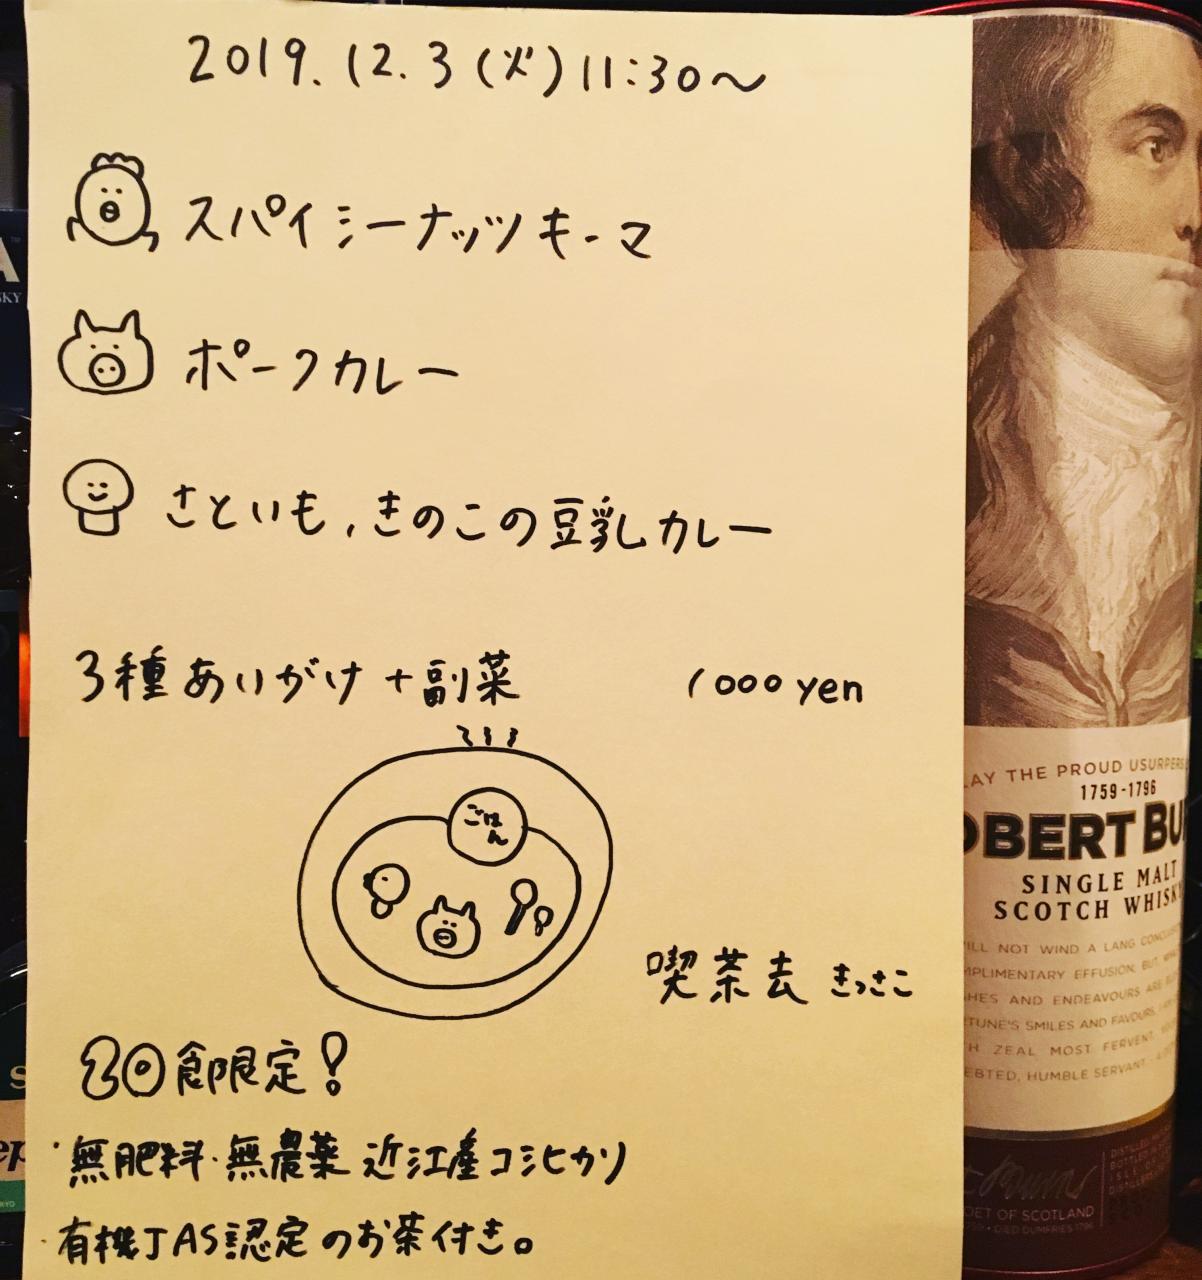 2019.12.3(火)11:30〜
スパイシーナッツキーマ
ポークカレー
さといも,きのこの豆乳カレー
3種あいがけ+副菜 1000yen
ごはん
喫茶去 きっさこ
20食限定!
・無肥料・無農薬 近江産コシヒカリ
・有機JAS認定のお茶付き。
LAY THE PROUD USURPERS
1759-1796
OBERT BU
SINGLE MALT
SCOTCH WHISK
ILL NOT WIND A LANG
MPLIMENTARY EFFUSION, BUT
HES AND ENDEAVOURS ARE
TUNE'S SMILES AND FAVOURS,
H ZEAL MOST FERVENT,
EBTED, HUMBLE SERVANT
OET OF SCOTLAND